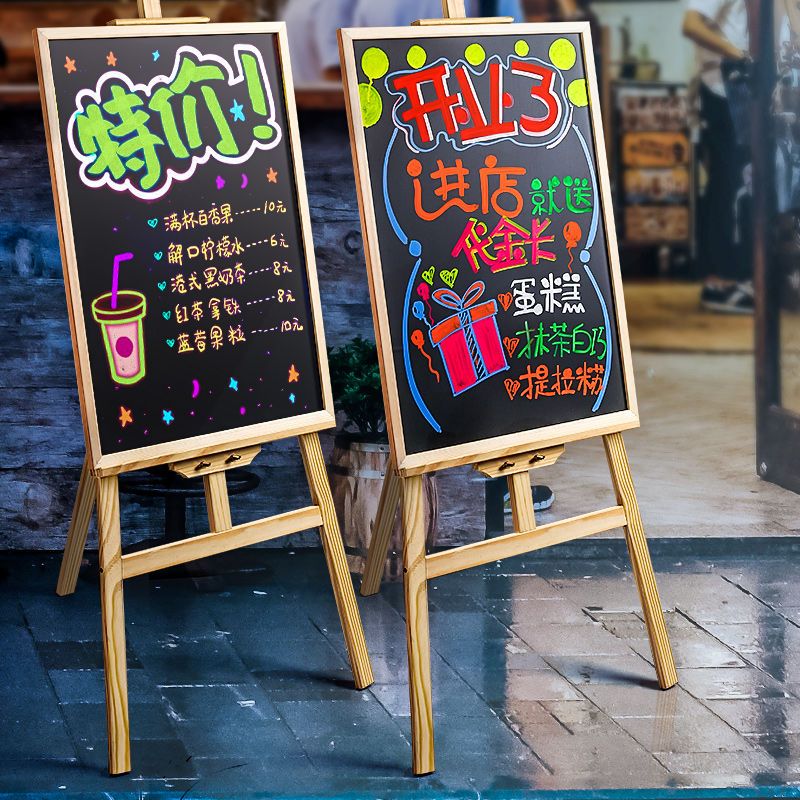 特价!
满杯百香果-----10元
解口柠檬水----6元
港式黑奶茶----8元
红茶拿铁----8元
蓝莓果粒----10元
开业了
进店就送
代金卡
蛋糕
抹茶白巧
提拉粉